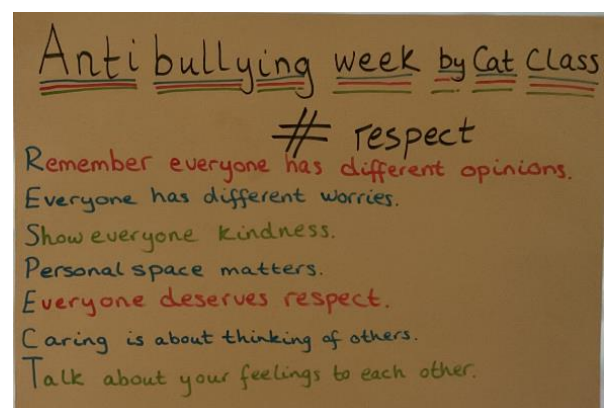 Anti bullying week by Cat Class
# respect
Remember everyone has different opinions.
Everyone has different worries.
Show everyone kindness.
Personal space matters.
Everyone deserves respect.
Caring is about thinking of others.
Talk about your feelings to each other.